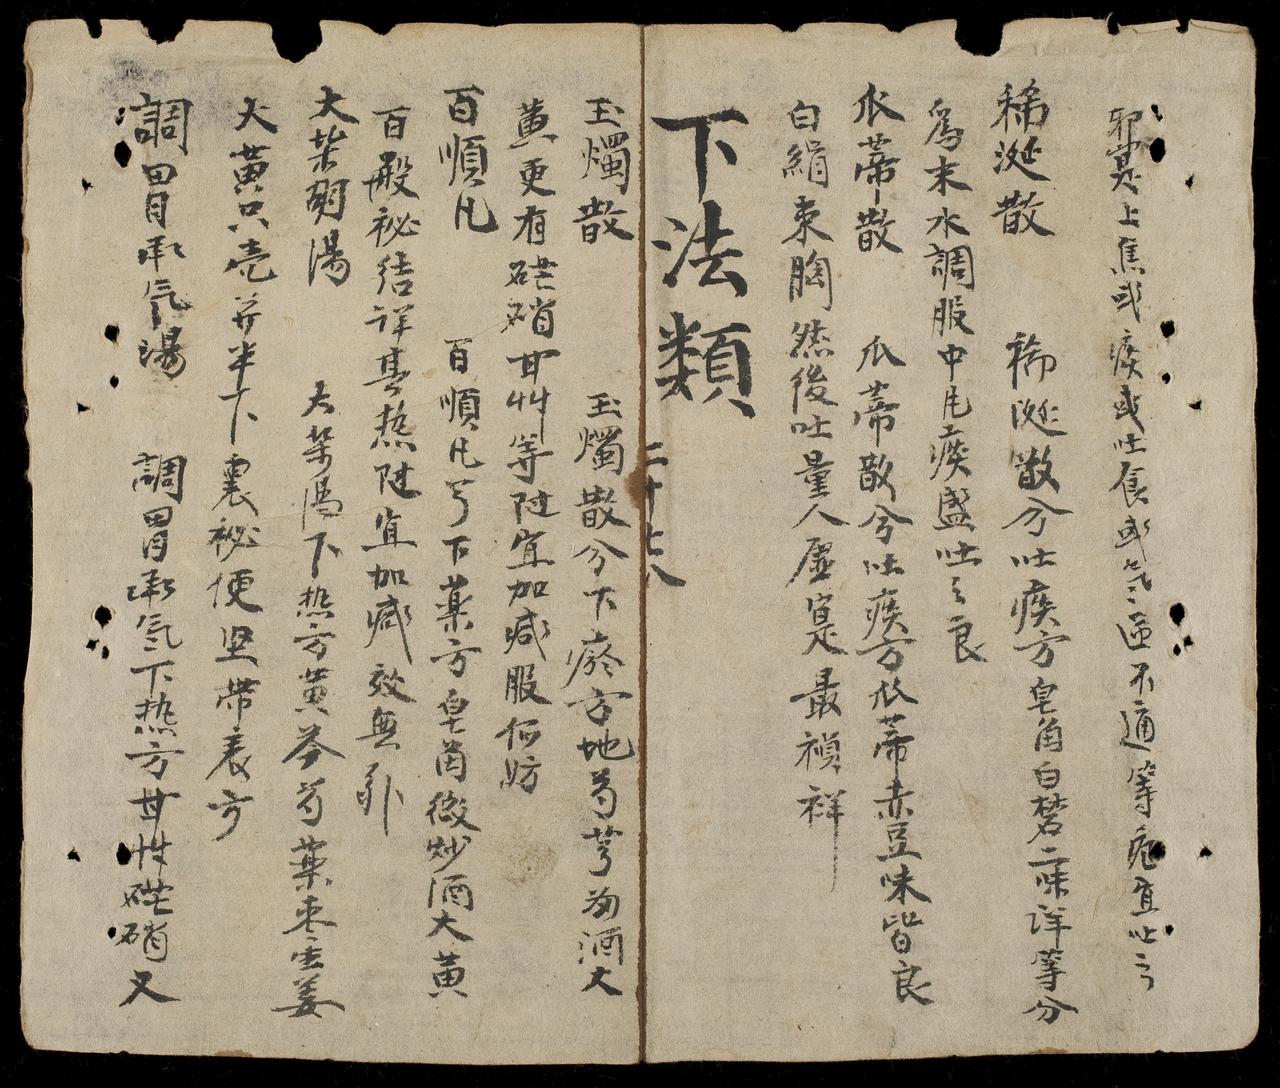 邪寔上焦或痰或吐食或气逆不通等症宜吐之
稀涎散　稀涎散兮吐痰方皂角白礬二味詳等分
為末水調服中凡痰盛吐之良
瓜蒂散　瓜蒂散兮吐痰方瓜蒂赤豆味皆良
白絹束胸然後吐量人虛寔最禎祥
下法類
二十七八
玉燭散　玉燭散兮下瘀方地芎芍酒大
黃更有硭硝甘艸等隨宜加减服何妨
百順凡　百順凡兮下藥方皁角微炒酒大黃
百般祕結詳甚热隨宜加减效無
大柴胡湯　大柴湯下热方黃芩芍藥枣生姜
大黃只壳并半下裏祕便坚帶表方
調胃承气湯　調胃承氣下热方甘艸硭硝又